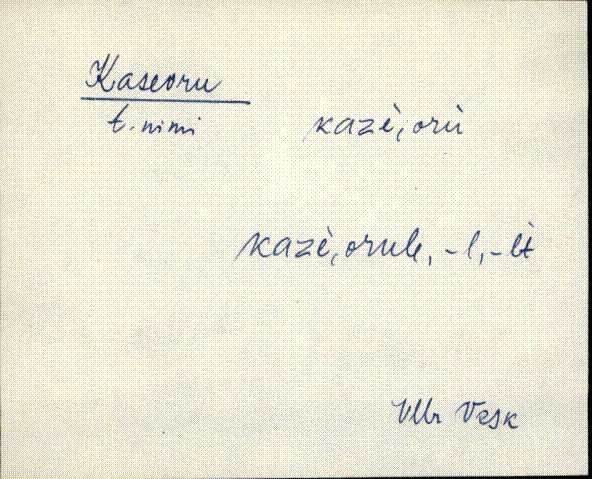 Kaseoru
t. nimi kazè, orù
kazè, orule, -l, -lt
Vllr Vesk